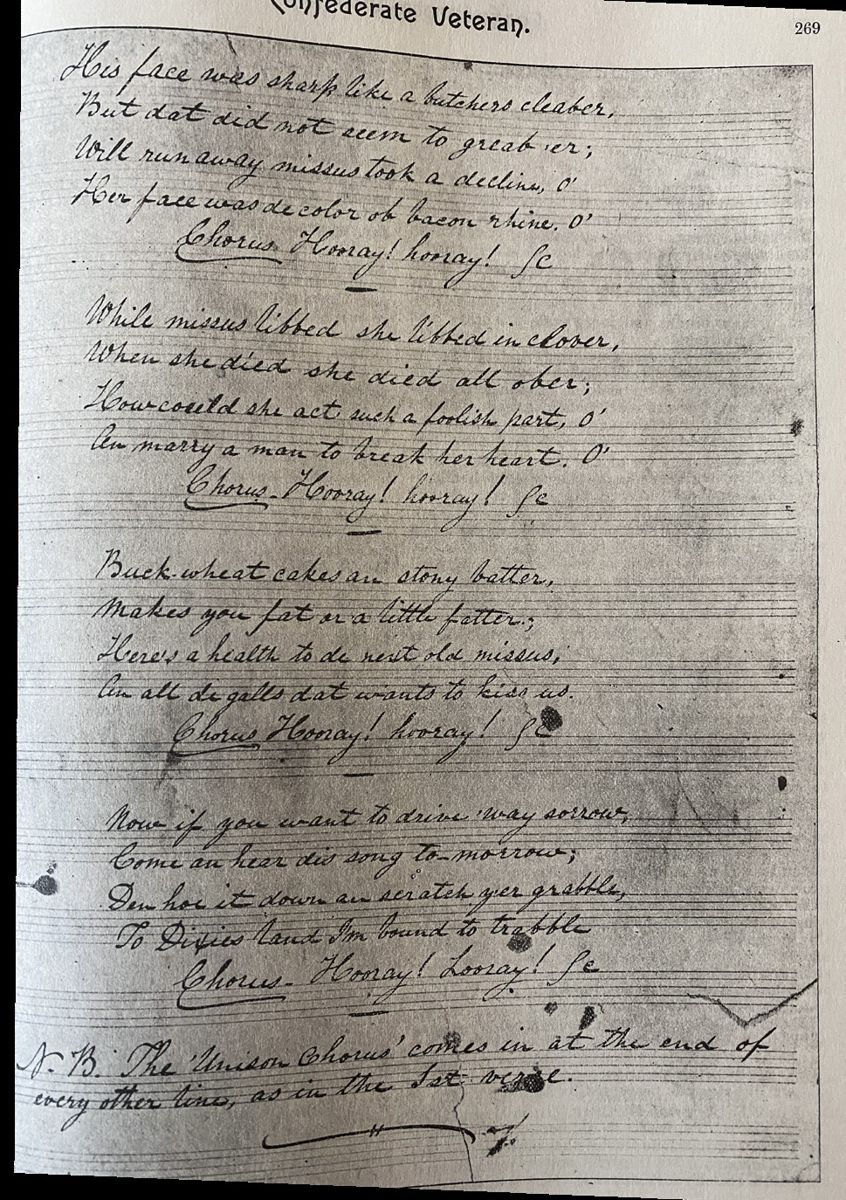 Confederate Veteran.
269
His face was sharp like a butchers cleaber,
But dat did not seem to greab 'er;
Will run away missus took a decline, O'
Her face was de color ob bacon rhine. O'
Chorus Hooray! hooray! &c
While missus libbed she libbed in clover,
When she died she died all ober;
How could she act such a foolish part, O'
An marry a man to break her heart. O'
Chorus - Hooray! hooray! &c
Buck-wheat cakes an stony batter,
Makes you fat or a little fatter;
Here's a health to de next old missus,
An all de galls dat wants to kiss us.
Chorus Hooray! hooray! &c
Now if you want to drive 'way sorrow,
Come an hear dis song to-morrow;
Den hoe it down an scratch yer grabble,
To Dixies land I'm bound to trabble
Chorus - Hooray! Looray! &c
N. B. The 'Unison Chorus' comes in at the end of
every other line, as in the 1st verse.